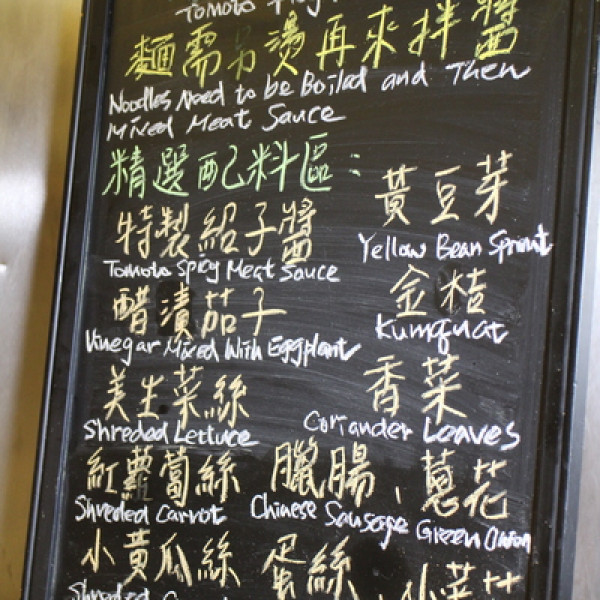 麵需另燙再來拌醬
Noodles Need to be Boilad and Then
Mixed Meat Sauce
精選配料區：
特製紹子醬
Tomoto Spicy Meat Sauce
醋漬茄子
Vinegar Mixed With Eggplant
美生菜絲
Shreded Lettuce
紅蘿蔔絲
Shreded Carrot
小黃瓜絲
Shreded
黃豆芽
Yellow Bean Sprout
金桔
Kumquat
香菜
Coriander Leaves
臘腸、蔥花
Chinese Sausage Green Onion
蛋絲、